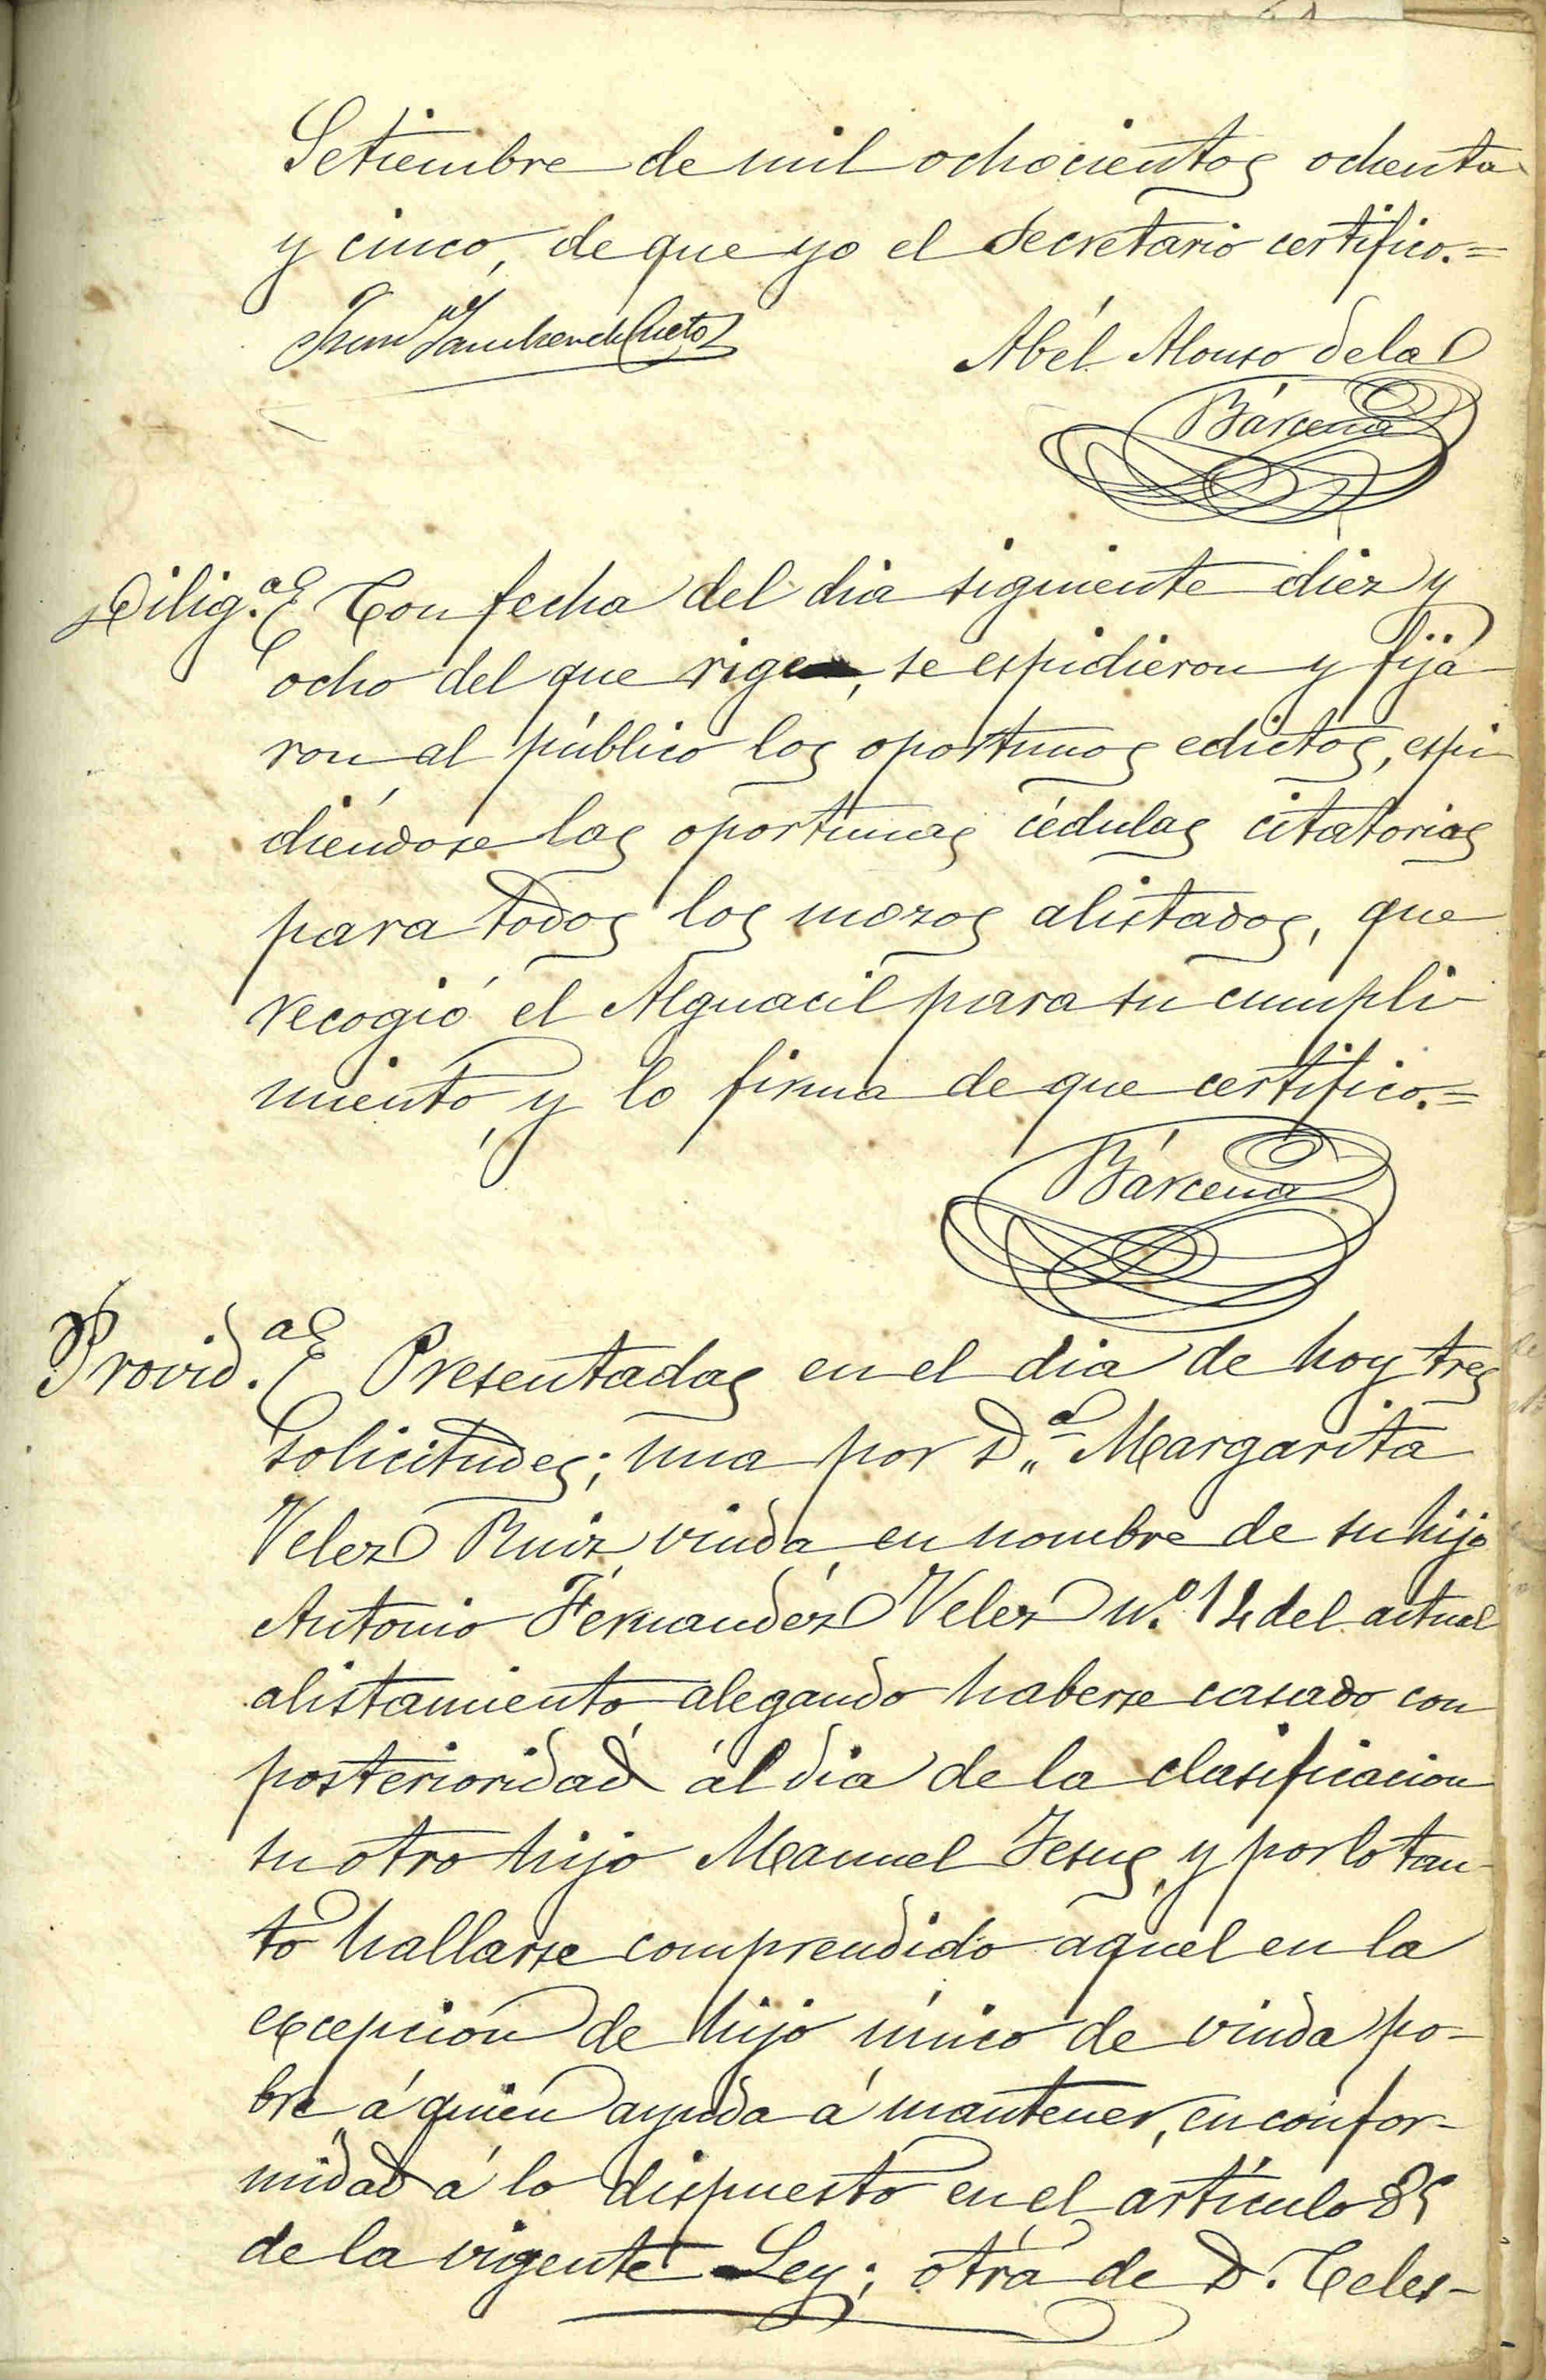 Setiembre de mil ochocientos ochenta
y cinco, de que yo el Secretario certifico.=
Juan Sanchez de Cueto
Abél Alonso de la
Bárcena
Dilig.ª Con fecha del dia siguiente diez y
ocho del que rige, se espidieron y fijá-
ron al público los oportunos edictos, espi-
diéndose las oportunas cédulas citatorias
para todos los mozos alistados, que
recogió el Alguacil para su cumpli-
miento, y lo firma de que certifico.=
Bárcena
Provid.ª Presentadas en el dia de hoy tres
solicitudes; una por D.ª Margarita
Velez Ruiz, viuda, en nombre de su hijo
Antonio Férnandez Velez n.º 14 del actual
alistamiento, alegando haberse casado con
posterioridad ál dia de la clasificacion
su otro hijo Manuel Jesus, y por lo tan-
to hallarse comprendido aquel en la
excepción de hijo único de viuda po-
bre á quién ayuda á mantener, en confor-
midad á lo dispuesto en el artículo 85
de la vigente Ley; otra de D. Celes-